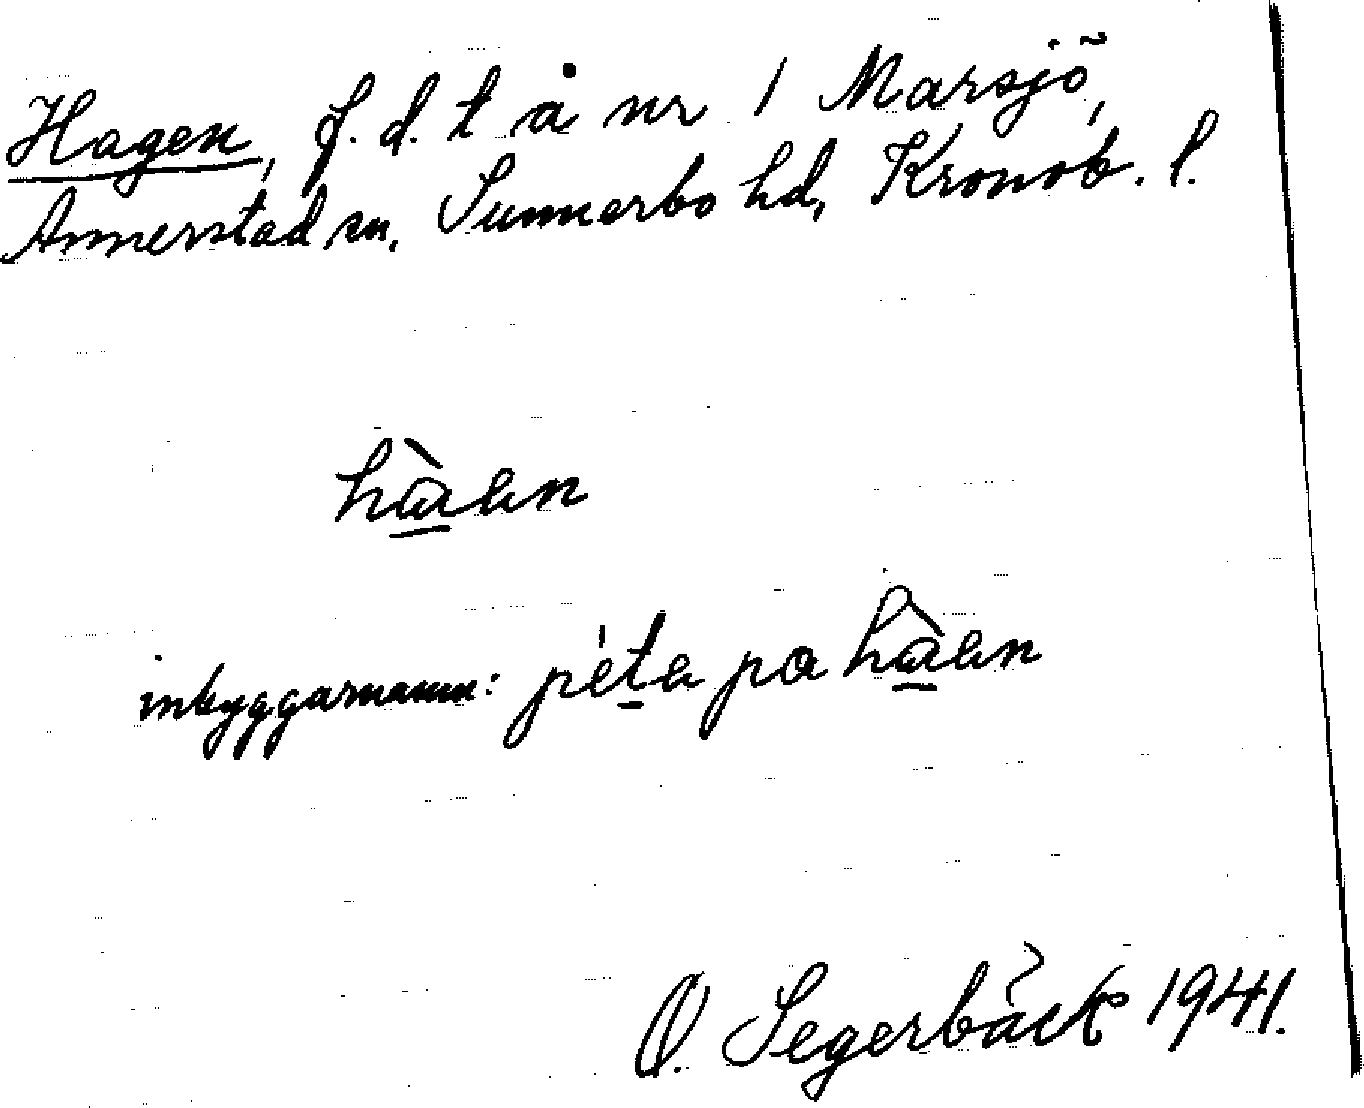 Hagen, f.d. t å nr 1 Marsjö,
Annerstad sn, Sunnerbo hd, Kronob. l.
hàen
inbyggarnamn: péta pa hàen
O. Segerbäck 1941.